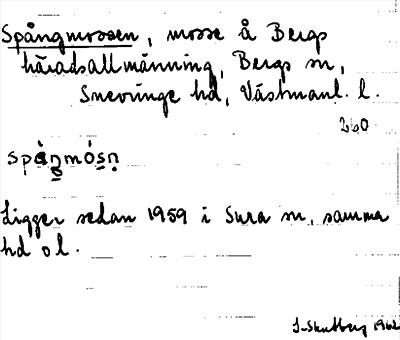 Spångmossen, mosse å Bergs
häradsallmänning, Bergs sn,
Snevringe hd, Västmanl. l.
260
spåŋmósn
Ligger sedan 1959 i Sura sn, samma
hd o l.
1962